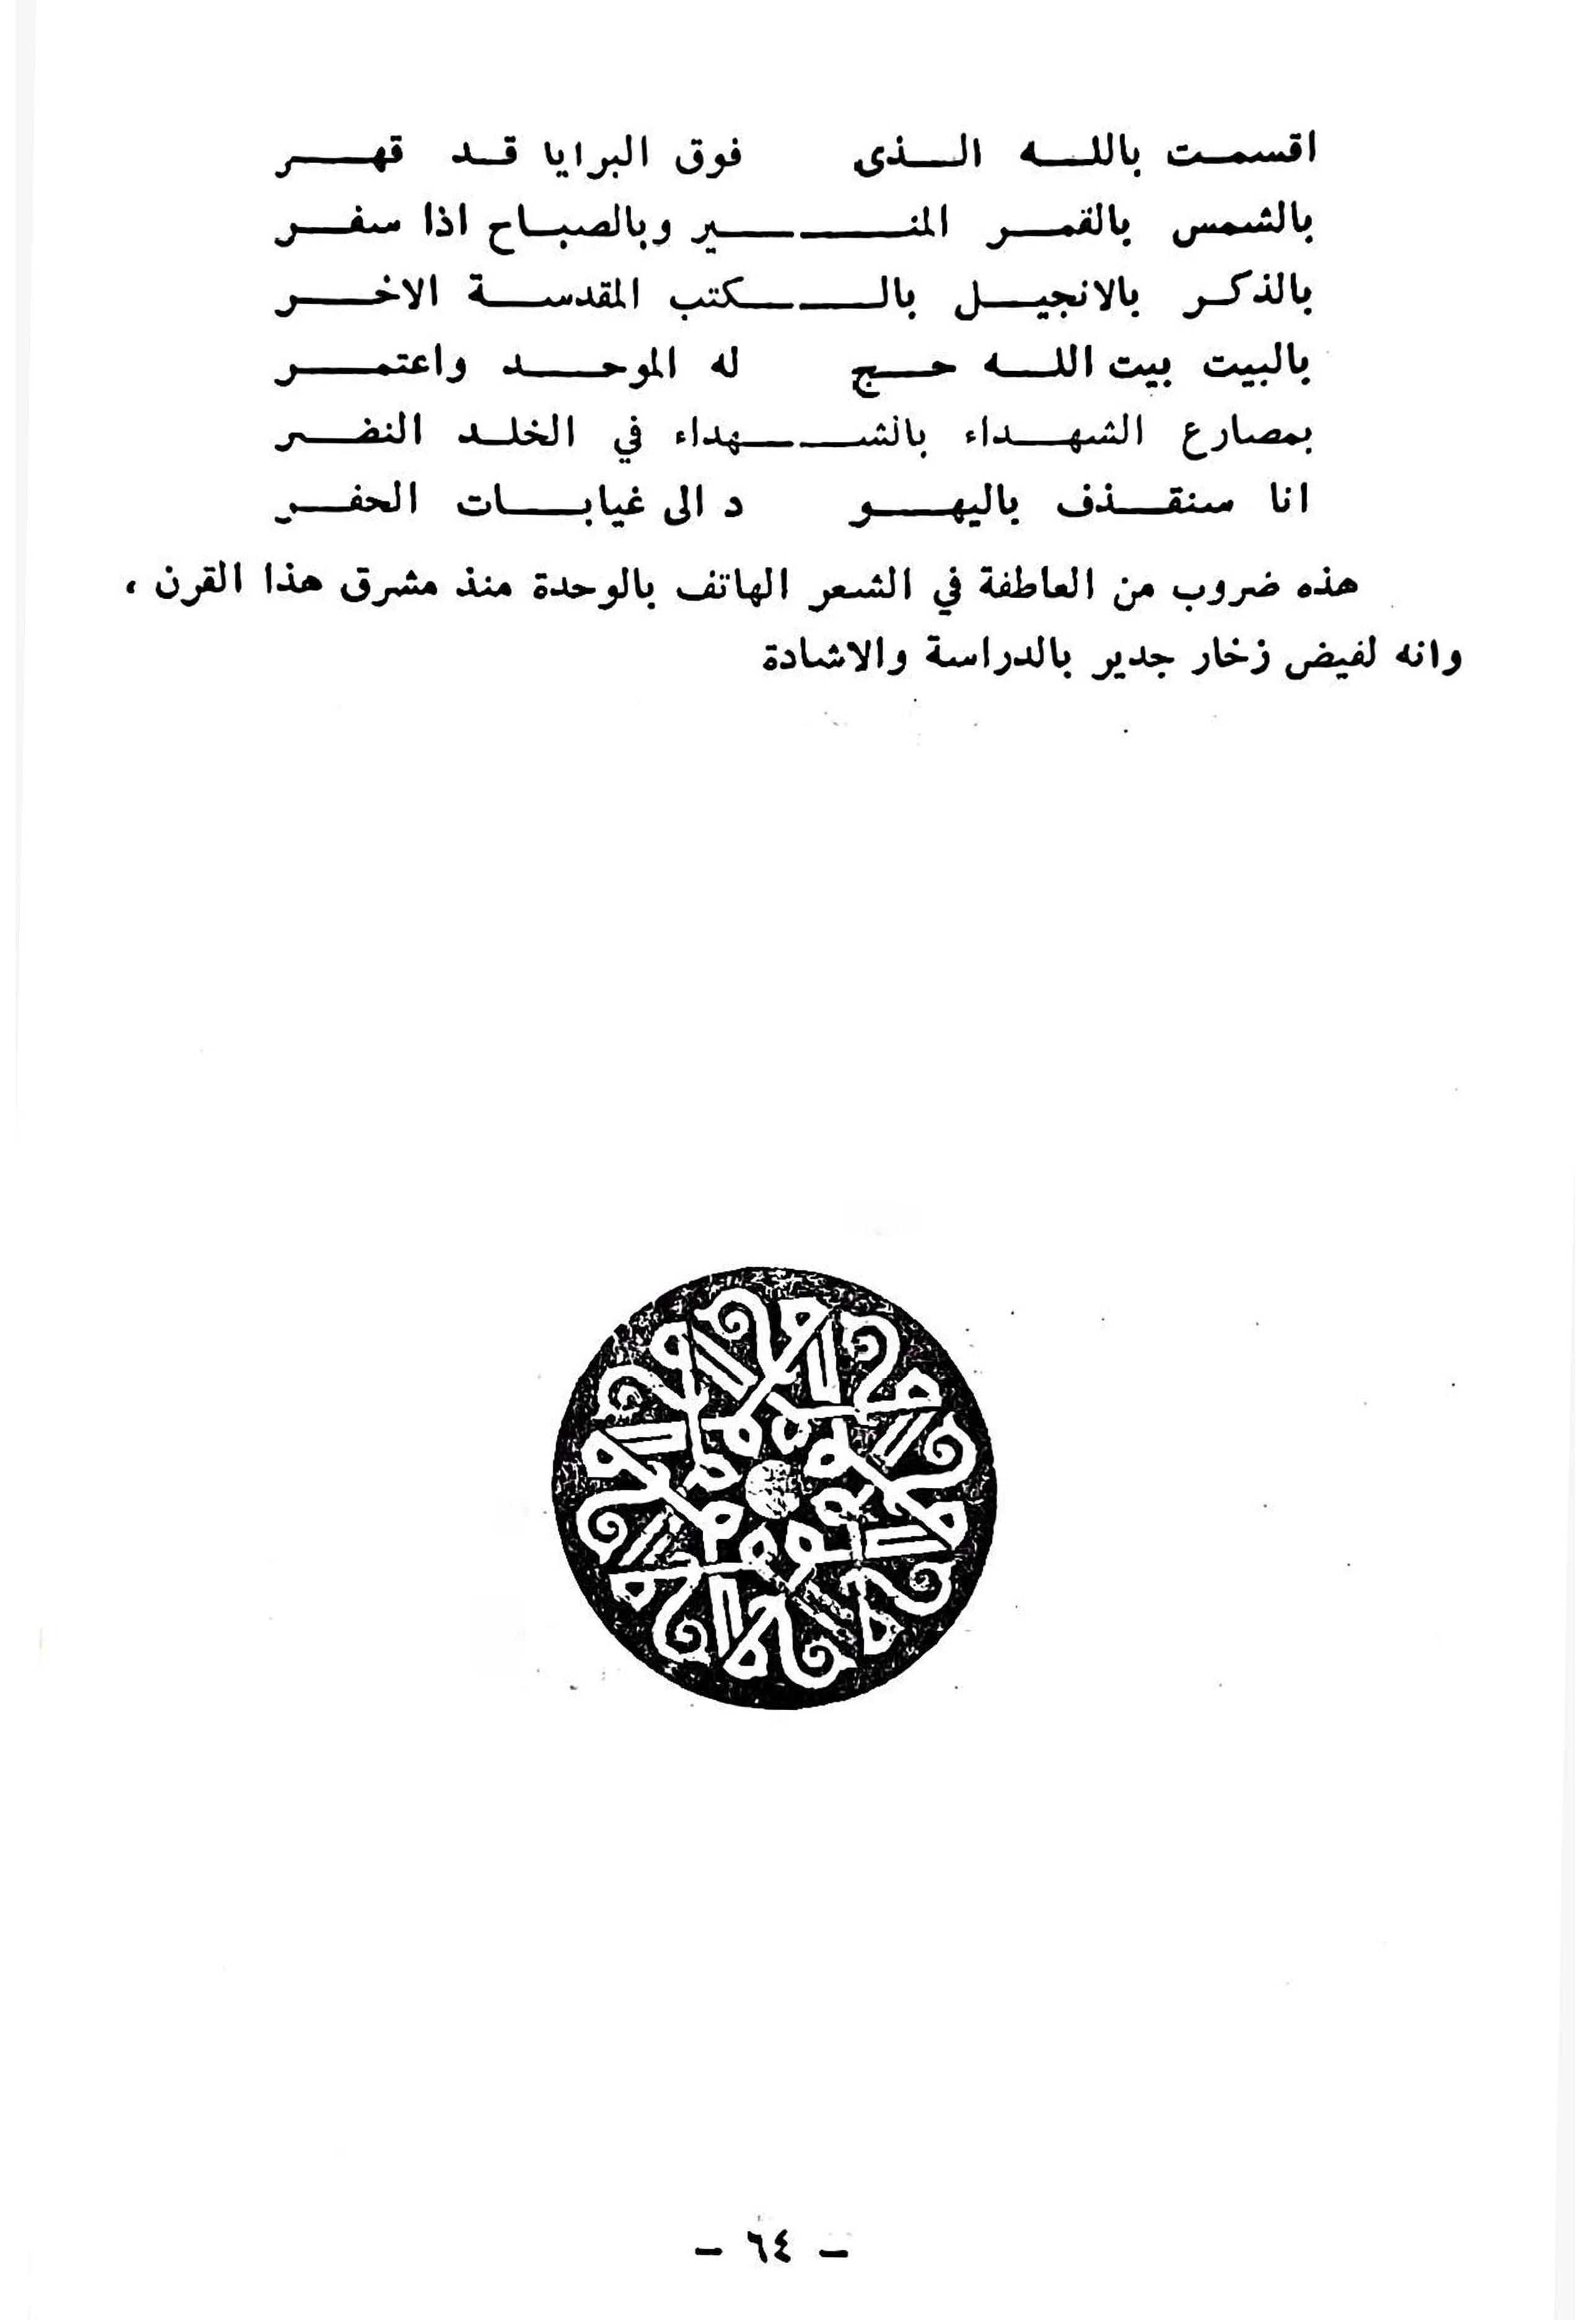 اقسمت بالله الذى فوق البرايا قد قهر
بالشمس بالقمر المنير وبالصباح اذا سفر
بالذكر بالانجيل بالكتب المقدسة الاخر
بالبيت بيت الله حج له الموحد واعتمر
بمصارع الشهداء بالشهداء في الخلد النضر
انا سنقذف باليهو د الى غيابات الحفر
هذه ضروب من العاطفة في الشعر الهاتف بالوحدة منذ مشرق هذا القرن ،
وانه لفيض زخار جدير بالدراسة والاشادة
- ٦٤ -